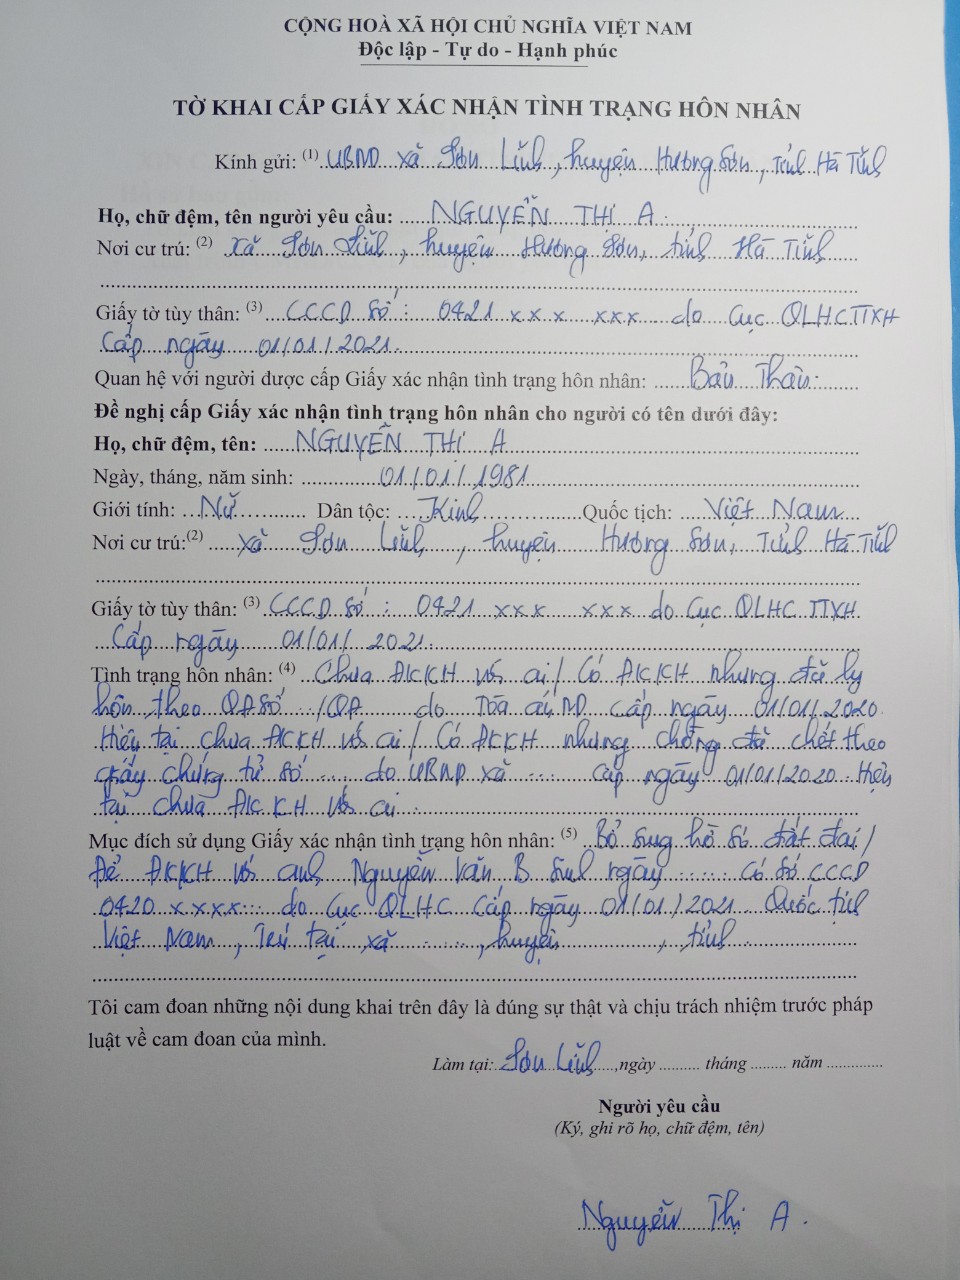 CỘNG HOÀ XÃ HỘI CHỦ NGHĨA VIỆT NAM
Độc lập - Tự do - Hạnh phúc
TỜ KHAI CẤP GIẤY XÁC NHẬN TÌNH TRẠNG HÔN NHÂN
Kính gửi: (1) UBND xã Sơn Lĩnh, huyện Hương Sơn, Tỉnh Hà Tĩnh
Họ, chữ đệm, tên người yêu cầu: NGUYỄN THỊ A
Nơi cư trú: (2) Xã Sơn Lĩnh, huyện Hương Sơn, tỉnh Hà Tĩnh
Giấy tờ tùy thân: (3) CCCD số: 0421 x x x x x x do Cục QLHC TTXH
Cấp ngày 01/01/2021
Quan hệ với người được cấp Giấy xác nhận tình trạng hôn nhân: Bản Thân
Đề nghị cấp Giấy xác nhận tình trạng hôn nhân cho người có tên dưới đây:
Họ, chữ đệm, tên: NGUYỄN THỊ A
Ngày, tháng, năm sinh: 01/01/1981
Giới tính: Nữ Dân tộc: Kinh Quốc tịch: Việt Nam
Nơi cư trú:(2) xã Sơn Lĩnh, huyện Hương Sơn, Tỉnh Hà Tĩnh
Giấy tờ tùy thân: (3) CCCD số: 0421 xxx xxx do Cục QLHC TTXH
Cấp ngày 01/01/2021
Tình trạng hôn nhân: (4) Chưa ĐKKH với ai/ Có ĐKKH nhưng đã ly
hôn theo QĐ số /QĐ do Tòa án ND cấp ngày 01/01/2020
Hiện tại chưa ĐKKH với ai/ Có ĐKKH nhưng chồng đã chết theo
giấy chứng tử số .... do UBND xã .... cấp ngày 01/01/2020 Hiện
tại chưa ĐKKH với ai
Mục đích sử dụng Giấy xác nhận tình trạng hôn nhân: (5) Bổ sung hồ sơ đất đai/
Để ĐKKH với anh Nguyễn Văn B sinh ngày ...... Có số CCCD
0420 xxxx do Cục QLHC Cấp ngày 01/01/2021 Quốc tịch
Việt Nam, Trú tại xã ......, huyện ......, tỉnh
Tôi cam đoan những nội dung khai trên đây là đúng sự thật và chịu trách nhiệm trước pháp
luật về cam đoan của mình.
Làm tại: Sơn Lĩnh, ngày .......... tháng ......... năm ..............
Người yêu cầu
(Ký, ghi rõ họ, chữ đệm, tên)
Nguyễn Thị A